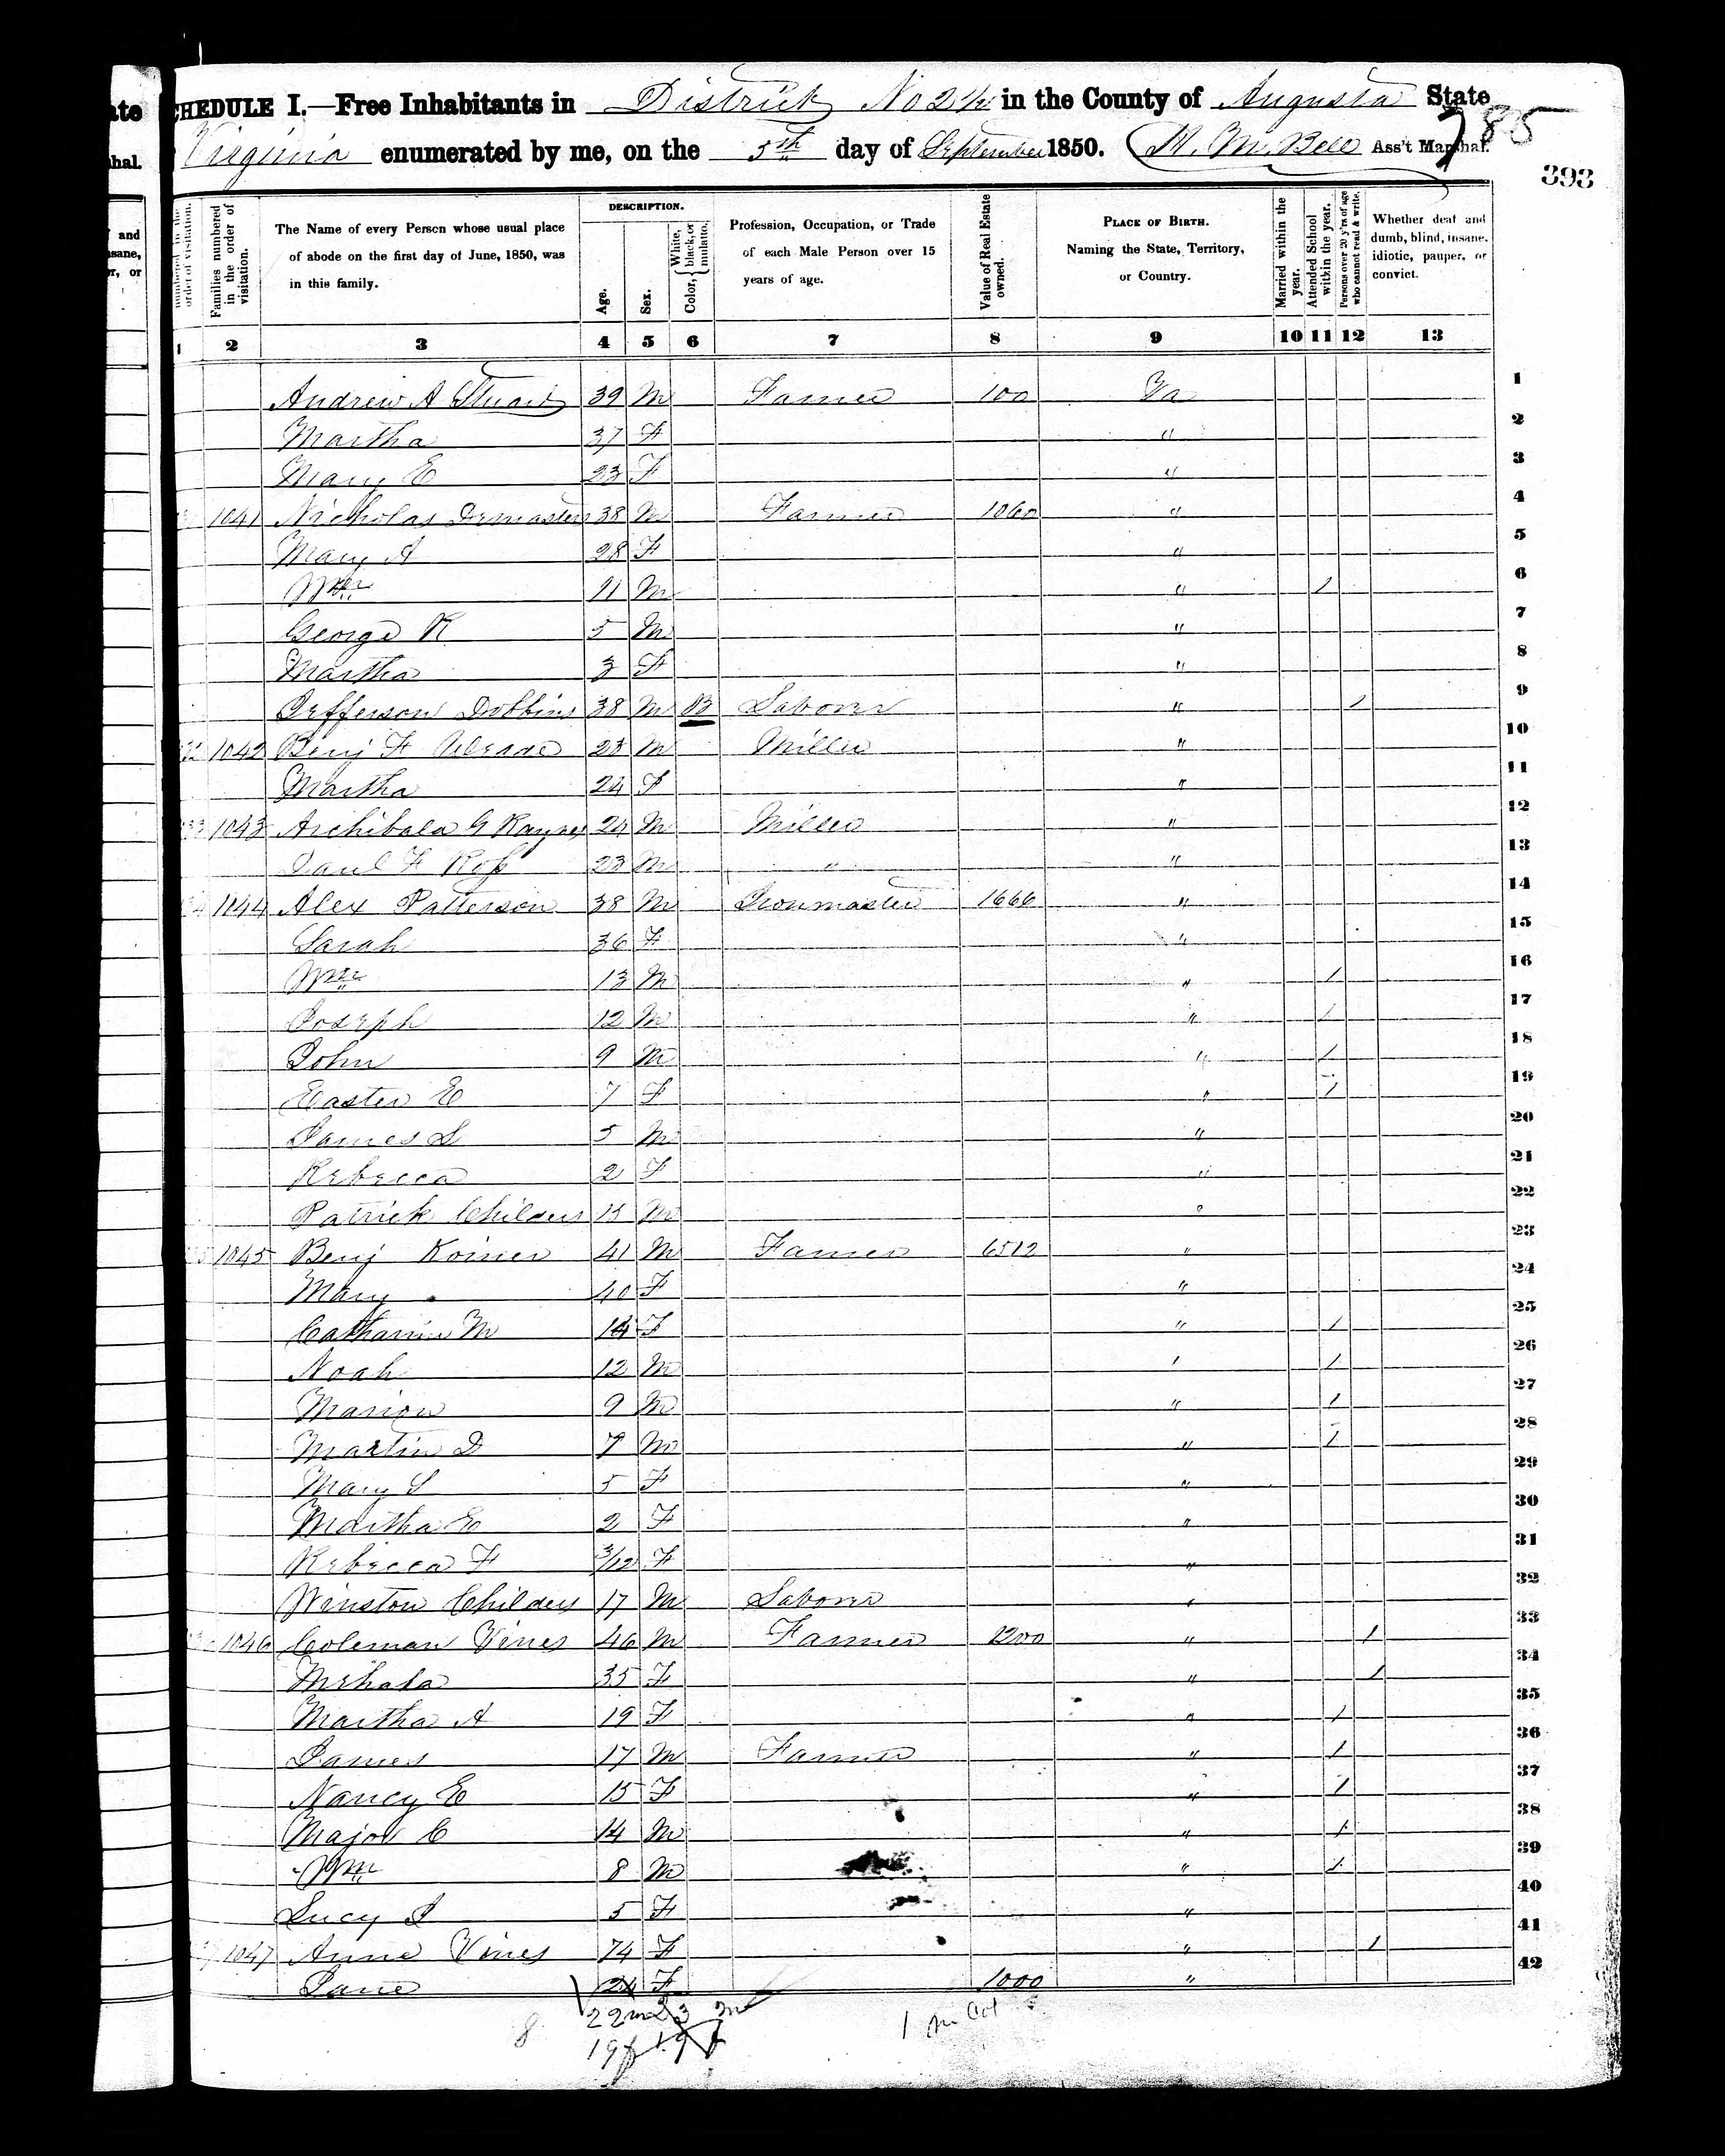 ate
SCHEDULE I.—Free Inhabitants in District No 2½ in the County of Augusta State
785
hal.
Virginia enumerated by me, on the 5th day of September 1850. Ass't Marshal.
393
numbered in the order of visitation.
Families numbered in the order of visitation.
The Name of every Person whose usual place of abode on the first day of June, 1850, was in this family.
DESCRIPTION.
Age.
Sex.
Color, { White, black, or mulatto.
Profession, Occupation, or Trade of each Male Person over 15 years of age.
Value of Real Estate owned.
PLACE OF BIRTH. Naming the State, Territory, or Country.
Married within the year.
Attended School within the year.
Persons over 20 y'rs of age who cannot read & write.
Whether deaf and dumb, blind, insane, idiotic, pauper, or convict.
1 2 3 4 5 6 7 8 9 10 11 12 13
Andrew A Stuart 39 M Farmer 100 Va 1
Martha 37 F " 2
Mary E 23 F " 3
1041 Nicholas Demasters 38 M Farmer 1060 " 4
Mary A 28 F " 5
Wm 11 M " 1 6
George K 5 M " 7
Martha 3 F " 8
Jefferson Dobbins 38 M B Laborer " 1 9
1042 Benj F 23 M Miller " 10
Martha 24 F " 11
1043 Archibald G 24 M Miller " 12
F Ross 23 M " " 13
1044 Alex Patterson 38 M Ironmaster 1666 " 14
Sarah 36 F " 15
Wm 13 M " 1 16
Joseph 12 M " 1 17
John 9 M " 1 18
Easter E 7 F " 1 19
James S 5 M " 20
Rebecca 2 F " 21
Patrick Childers 15 M " 22
1045 Benj Koiner 41 M Farmer 6512 " 23
Mary 40 F " 24
Catharine M 14 F " 1 25
Noah 12 M " 1 26
Marion 9 M " 1 27
Martin D 7 M " 1 28
Mary S 5 F " 29
Martha E 2 F " 30
Rebecca F 3/12 F " 31
Winston Childers 17 M Laborer " 32
1046 Coleman Vines 46 M Farmer 1200 " 1 33
Mehala 35 F " 1 34
Martha A 19 F " 1 35
James 17 M Farmer " 1 36
Nancy E 15 F " 1 37
Major C 14 M " 1 38
Wm 8 M " 1 39
Lucy J 5 F " 40
1047 Anne Vines 74 F " 1 41
Jane 24 F 1000 " 42
22 m 23 m
8 19 f 19 f
1 m Col